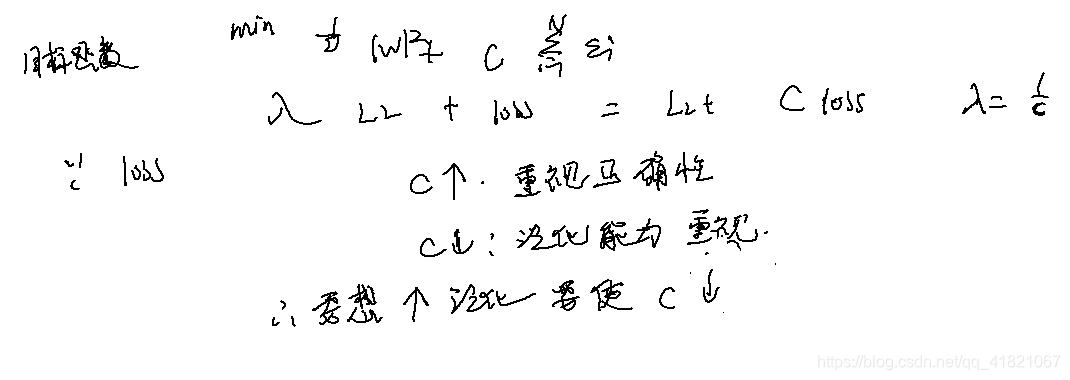 目标函数 min ½ |W|² + C Σ(i=1..N) εi
λ L2 + loss = L2 + C loss λ = 1/C
∵ loss C↑. 重视正确性
C↓: 泛化能力 重视.
∴ 要想 ↑ 泛化 要使 C ↓
https://blog.csdn.net/qq_41821067